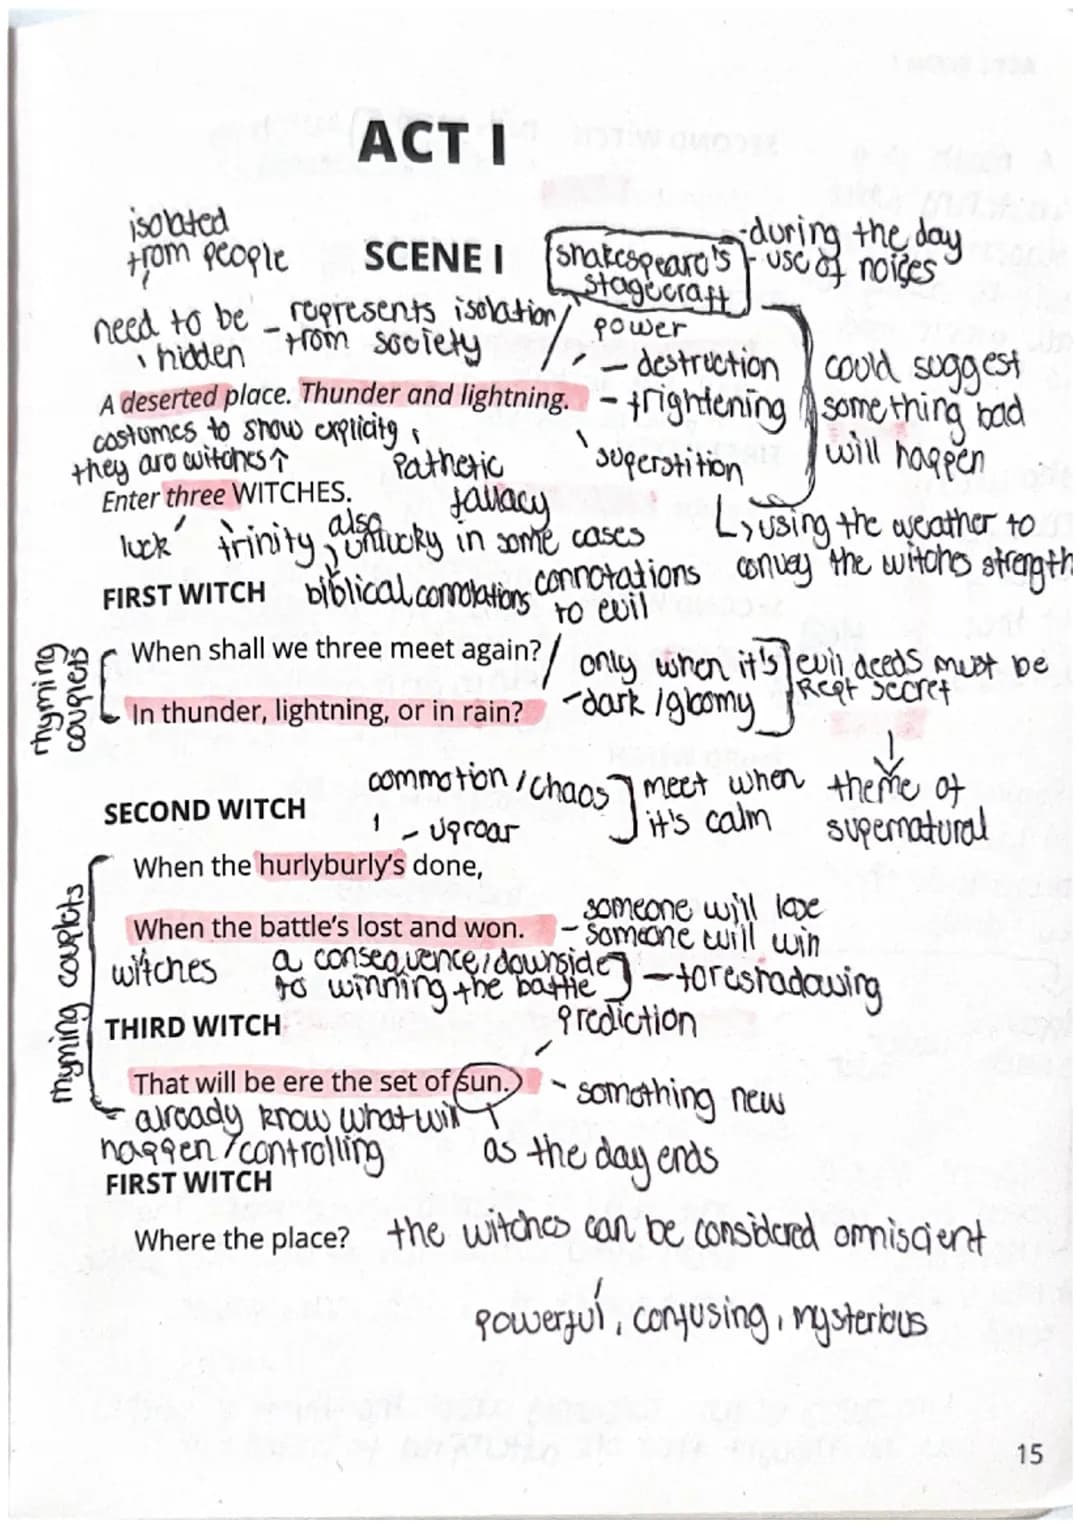 ACT I
isolated
from people
SCENE I
shakespeare's
stagecraft
-during the day
- use of noises
need to be
hidden
- represents isolation
from society
power
- destruction
- frightening
superstition
could suggest
something bad
will happen
A deserted place. Thunder and lightning.
costumes to show explicity
they are witches ↑
Pathetic
fallacy
Enter three WITCHES.
luck
trinity, also unlucky in some cases
↳ using the weather to
convey the witches strength
FIRST WITCH
biblical connotations
connotations
to evil
rhyming
couplets
When shall we three meet again?
In thunder, lightning, or in rain?
only when it's
-dark / gloomy
evil deeds must be
kept secret
SECOND WITCH
commotion / chaos
- uproar
meet when
it's calm
theme of
supernatural
rhyming couplets
When the hurlyburly's done,
When the battle's lost and won.
- someone will lose
- someone will win
witches
a consequence/downside
to winning the battle
- foreshadowing
THIRD WITCH
prediction
That will be ere the set of sun.
- something new
already know what will
happen / controlling
as the day ends
FIRST WITCH
Where the place?
the witches can be considered omniscient
powerful, confusing, mysterious
15